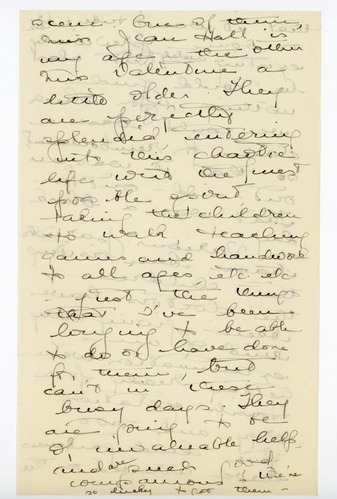 scene One of them,
Miss Jean Hall is
my age, the other
Mrs Valentine a
little older. They
are perfectly
splendid entering
into this chaotic
life with the finest
possible spirit.
Taking the children
to walk, teaching
games and handwork
to all ages etc etc
- just the things
that I've been
longing to be able
to do or have done
for them, but
can't in these
busy days. They
are going to be
of invaluable help
and are such good
companions, we're
so lucky to get them -